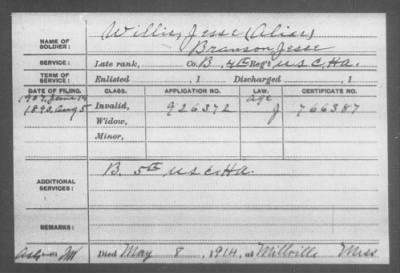 NAME OF SOLDIER: Willis, Jesse (Alias)
Branson, Jesse
SERVICE: Late rank, Co. B, 4th Reg't U.S.C.H.A.
TERM OF SERVICE: Enlisted , 1 Discharged , 1
DATE OF FILING. CLASS. APPLICATION NO. LAW. CERTIFICATE NO.
1907, June 14 Age
1890, Aug 5 Invalid, 926372 J 766387
Widow,
Minor,
ADDITIONAL SERVICES: B. 5th U.S.C.H.A.
REMARKS:
Died May 8, 1914, at Millville Miss.